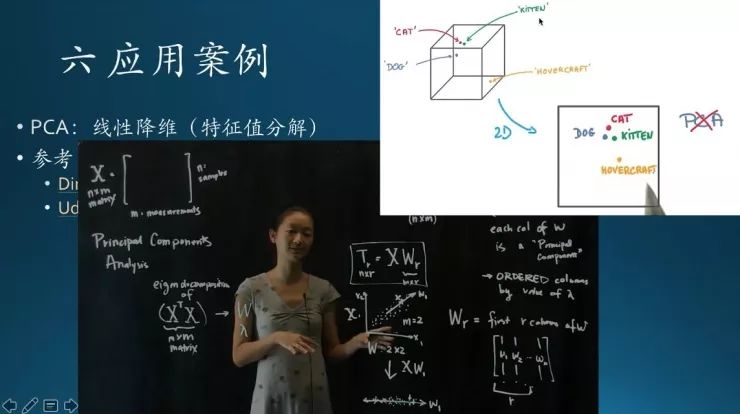 六 应用案例
• PCA：线性降维（特征值分解）
• 参考
• Din
• Ud
'KITTEN'
'CAT'
'DOG'
'HOVERCRAFT'
2D
CAT
DOG
KITTEN
HOVERCRAFT
PCA
X =
n×m
matrix
n:
samples
m = measurements
Principal Components
Analysis
eigendecomposition
of
(XᵀX)
m×m
matrix
→ W
λ
(n×m)
Tᵣ = X Wᵣ
n×r
m×r
X:
x₂
w₁
m=2
x₁
W = 2×2
↓ XW₁
w₁
each col of W
is a "Principal
Components"
→ ORDERED columns
by value of λ
Wᵣ = first r columns of W
r